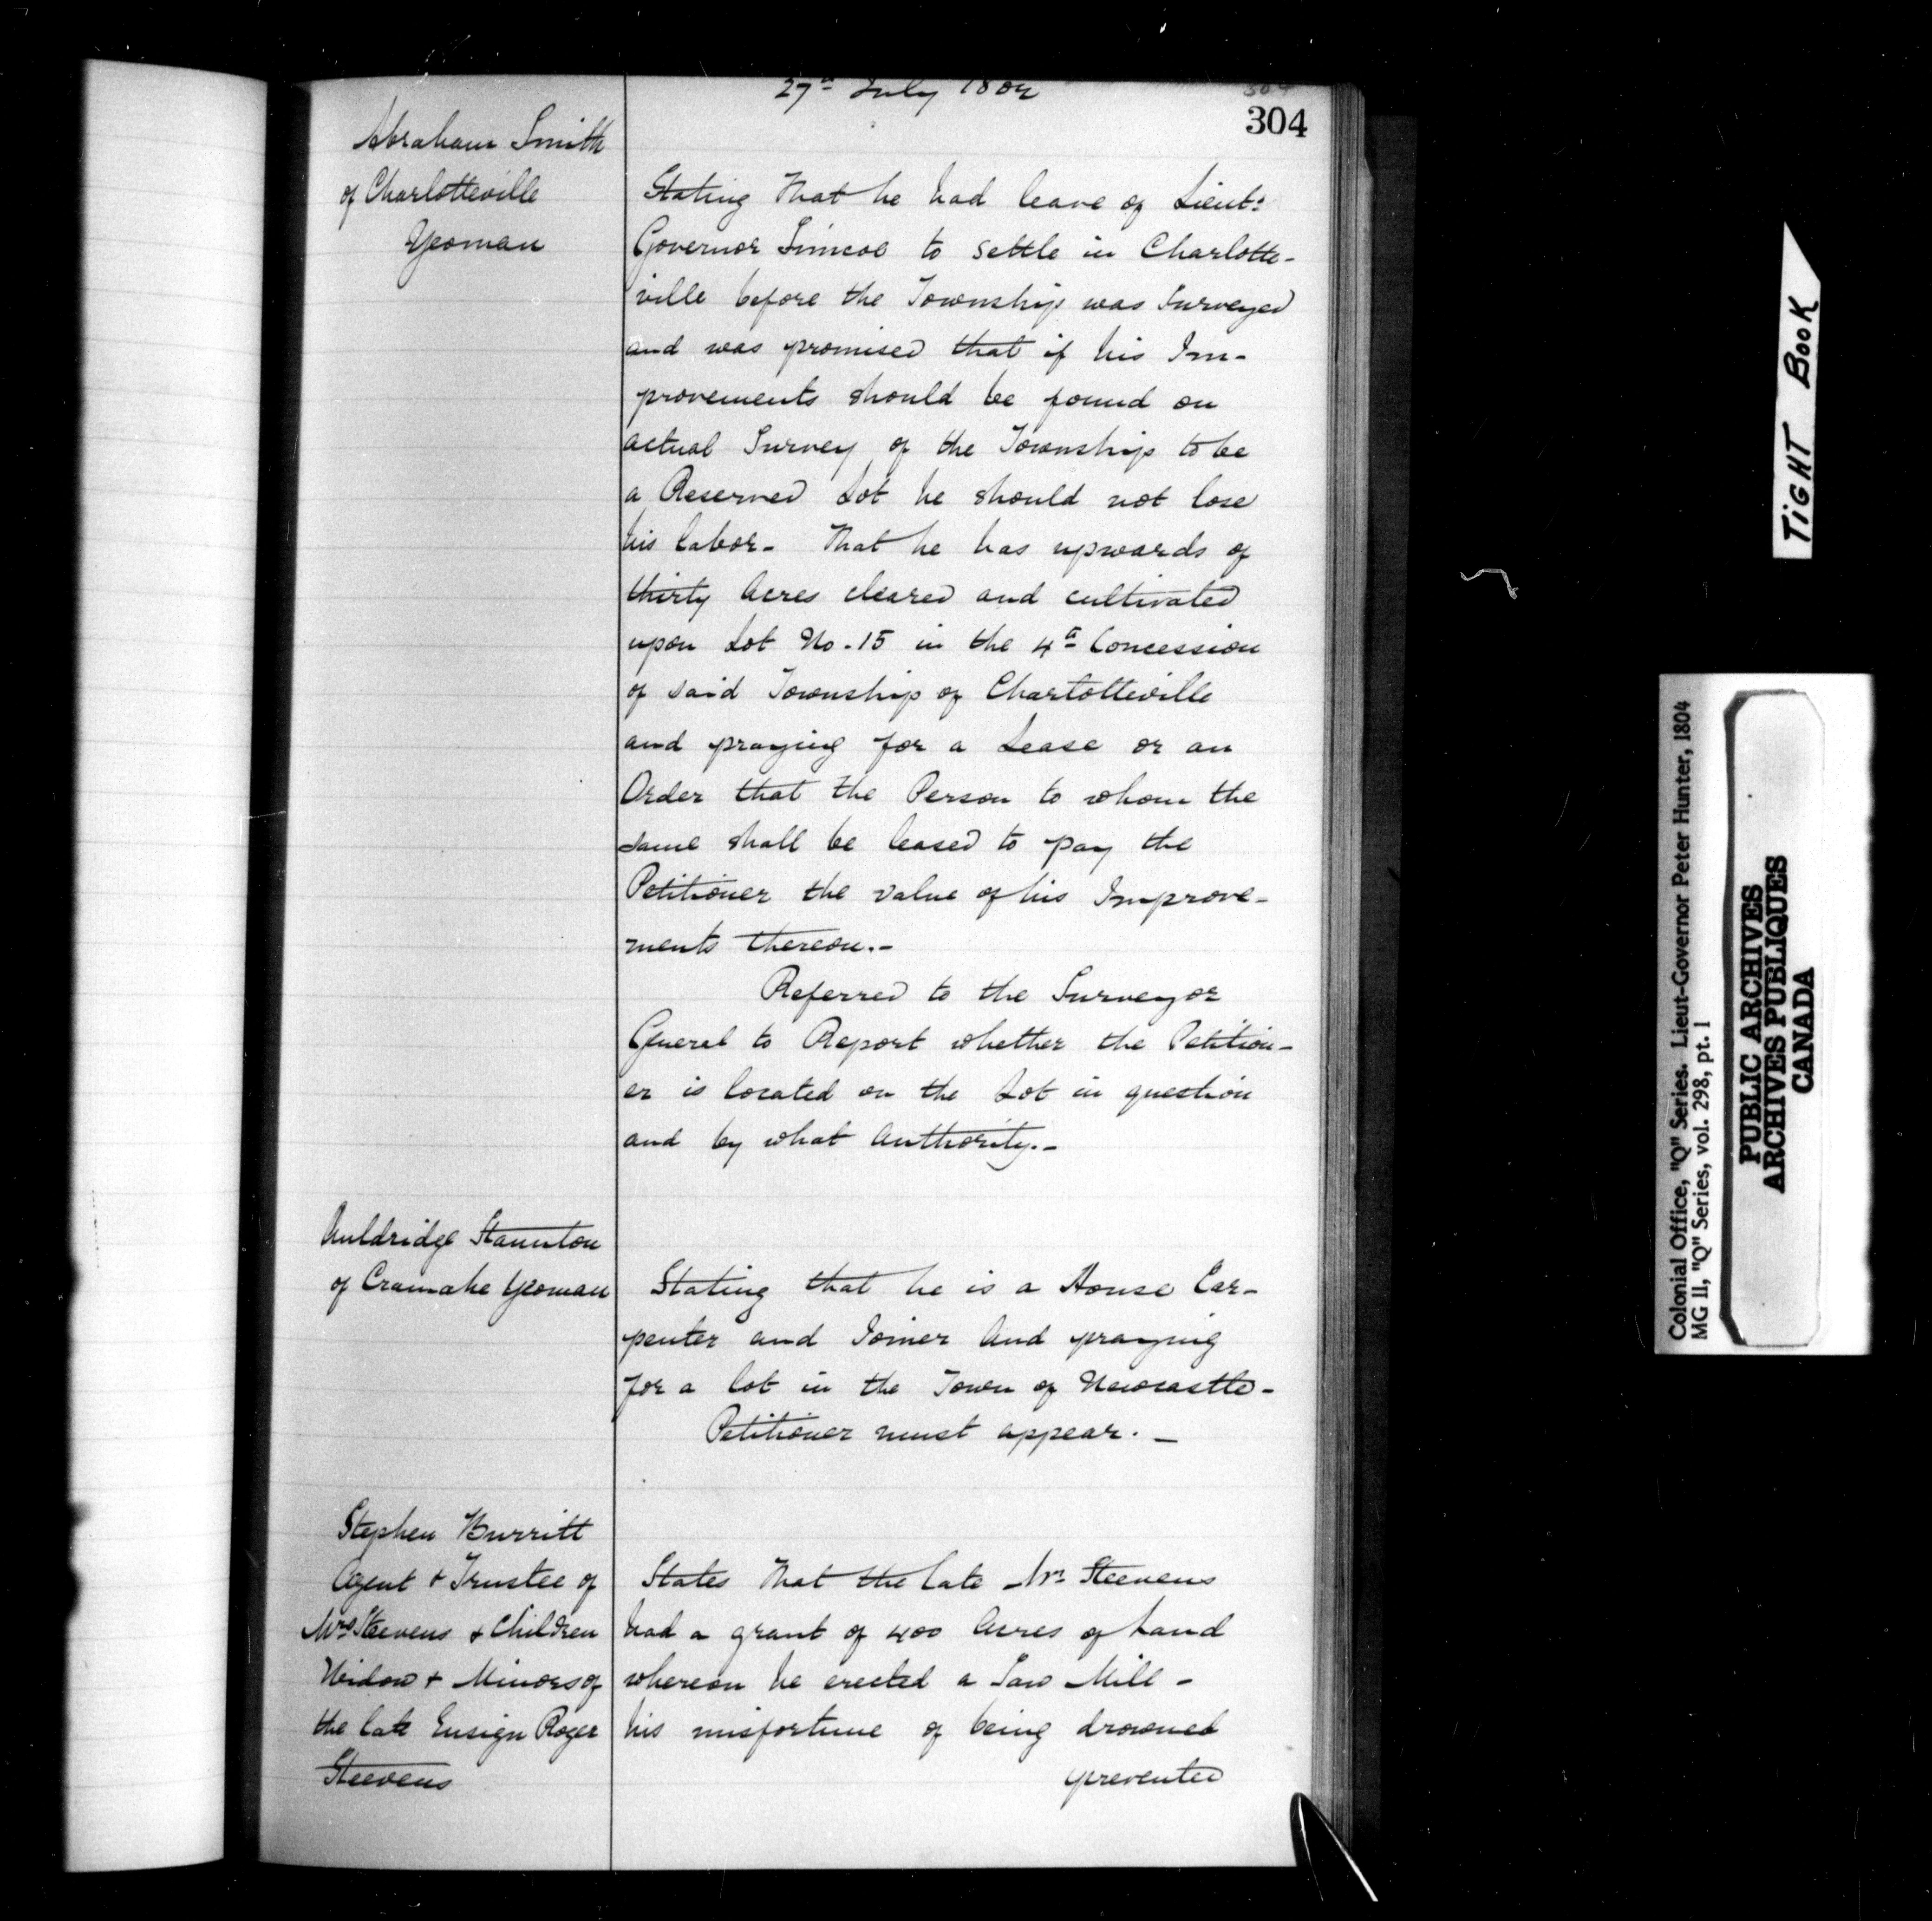 27th July 1804
304
Abraham Smith
of Charlotteville
Yeoman
Stating That he had leave of Lieut:
Governor Simcoe to settle in Charlotte-
ville before the Township was Surveyed
and was promised that if his Im-
provements should be found on
actual Survey of the Township to be
a Reserved Lot he should not lose
his labor- That he has upwards of
thirty Acres cleared and cultivated
upon Lot No. 15 in the 4th Concession
of said Township of Charlotteville
and praying for a Lease or an
Order that the Person to whom the
same shall be leased to pay the
Petitioner the value of his Improve-
ments thereon.-
Referred to the Surveyor
General to Report whether the Petition-
er is located on the Lot in question
and by what Authority.-
Auldridge Staunton
of Cramahe Yeoman
Stating that he is a House Car-
penter and Joiner And praying
for a lot in the Town of Newcastle-
Petitioner must appear. -
Stephen Burritt
Agent & Trustee of
Mrs Steevens & Children
Widow & Minors of
the late Ensign Roger
Steevens
States That the late Mr Steevens
had a grant of 400 Acres of Land
whereon he erected a Saw Mill -
his misfortune of being drowned
prevented
TIGHT BOOK
Colonial Office, "Q" Series. Lieut-Governor Peter Hunter, 1804
MG 11, "Q" Series, vol. 298, pt. 1
PUBLIC ARCHIVES
ARCHIVES PUBLIQUES
CANADA